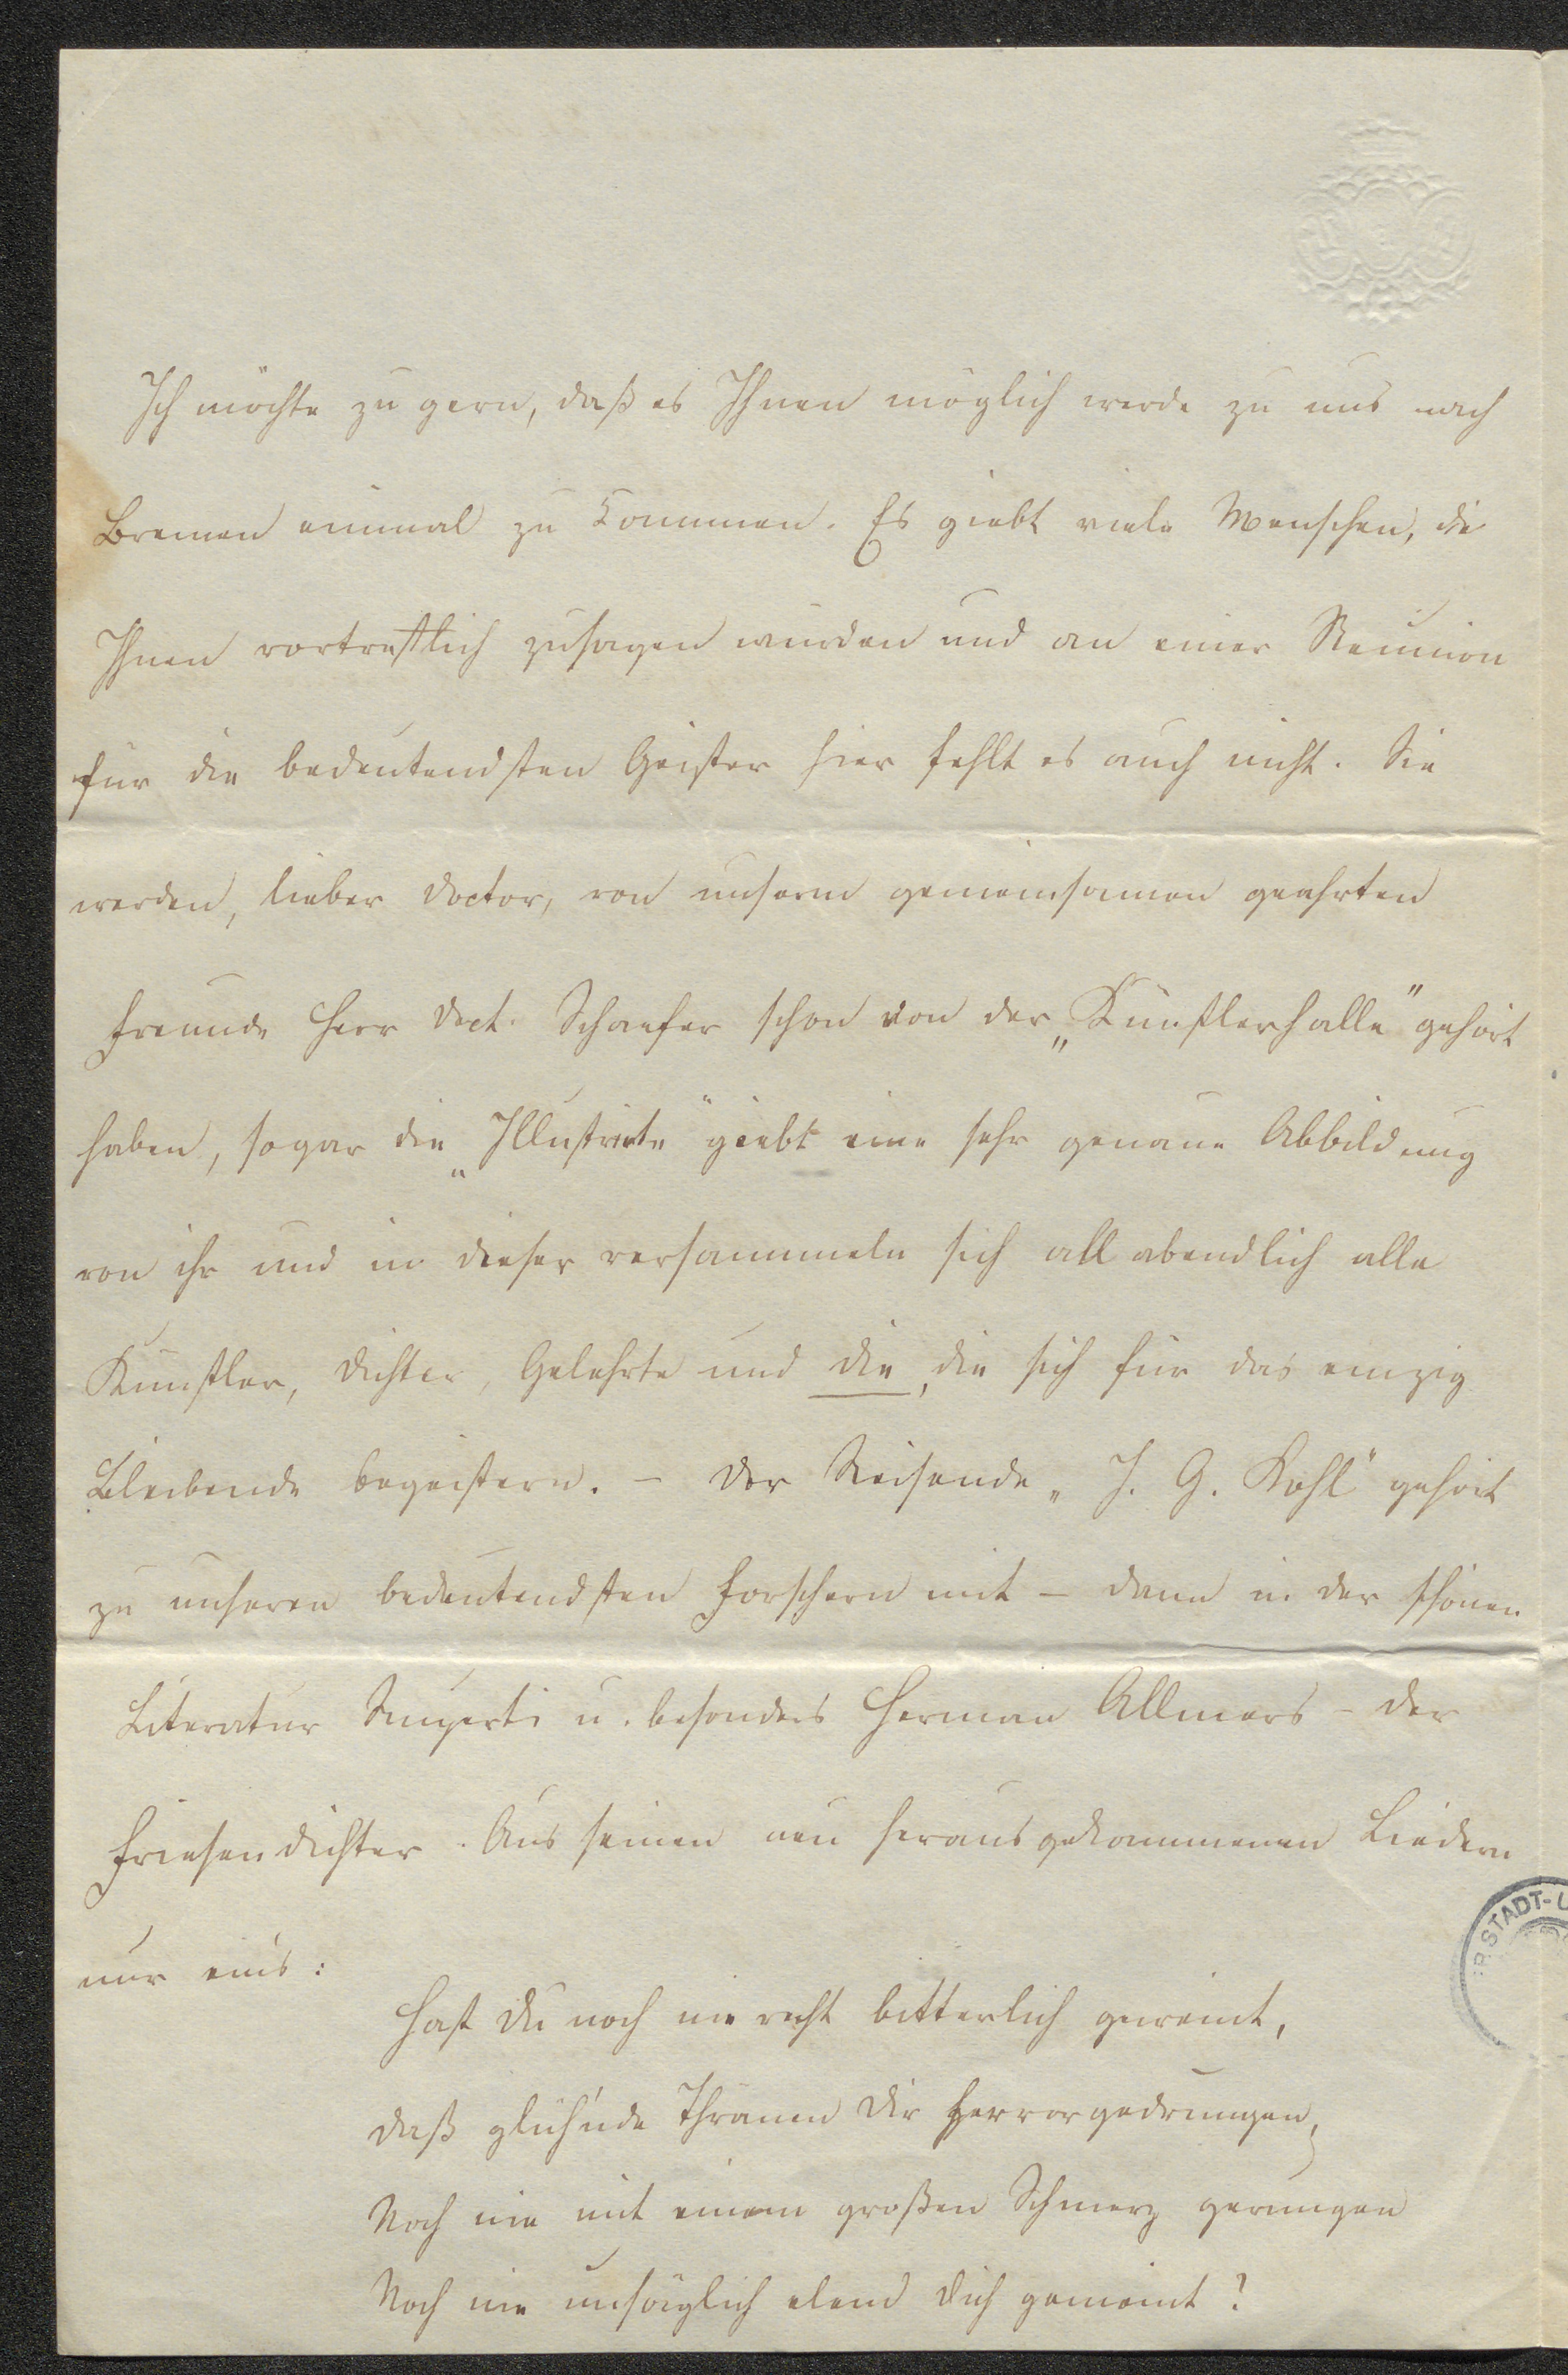 Ich möchte zu gern, daß es Ihnen möglich werde zu uns nach
Bremen einmal zu kommen. Es giebt viele Menschen, die
Ihnen vortrefflich zusagen wurden und an einer Reunion
für die bedeutendsten Geister hier fehlt es auch nicht. Sie
werden, lieber Doctor, von unserm gemeinsamen geehrten
Freunde Herr Doct. Schaefer schon von der „Künstlerhalle" gehört
haben, sogar die „Illustrirte" giebt eine sehr genaue Abbildung
von ihr und in dieser versammeln sich all abendlich alle
Künstler, Dichter, Gelehrte und die, die sich für das einzig
Bleibende begeistern. – Der Reisende „J. G. Kohl" gehört
zu unseren bedeutendsten Forschern mit – dann in der schönen
Literatur Ruperti u. besonders Herman Allmers – der
Friesendichter. Aus seinen neu herausgekommenen Liedern
nur eins:
Hast Du noch nie recht bitterlich geweint,
daß glüh'nde Thränen Dir hervorgedrungen,
Noch nie mit einem großen Schmerz gerungen
Noch nie unsäglich elend Dich gemeint?
STADT-U